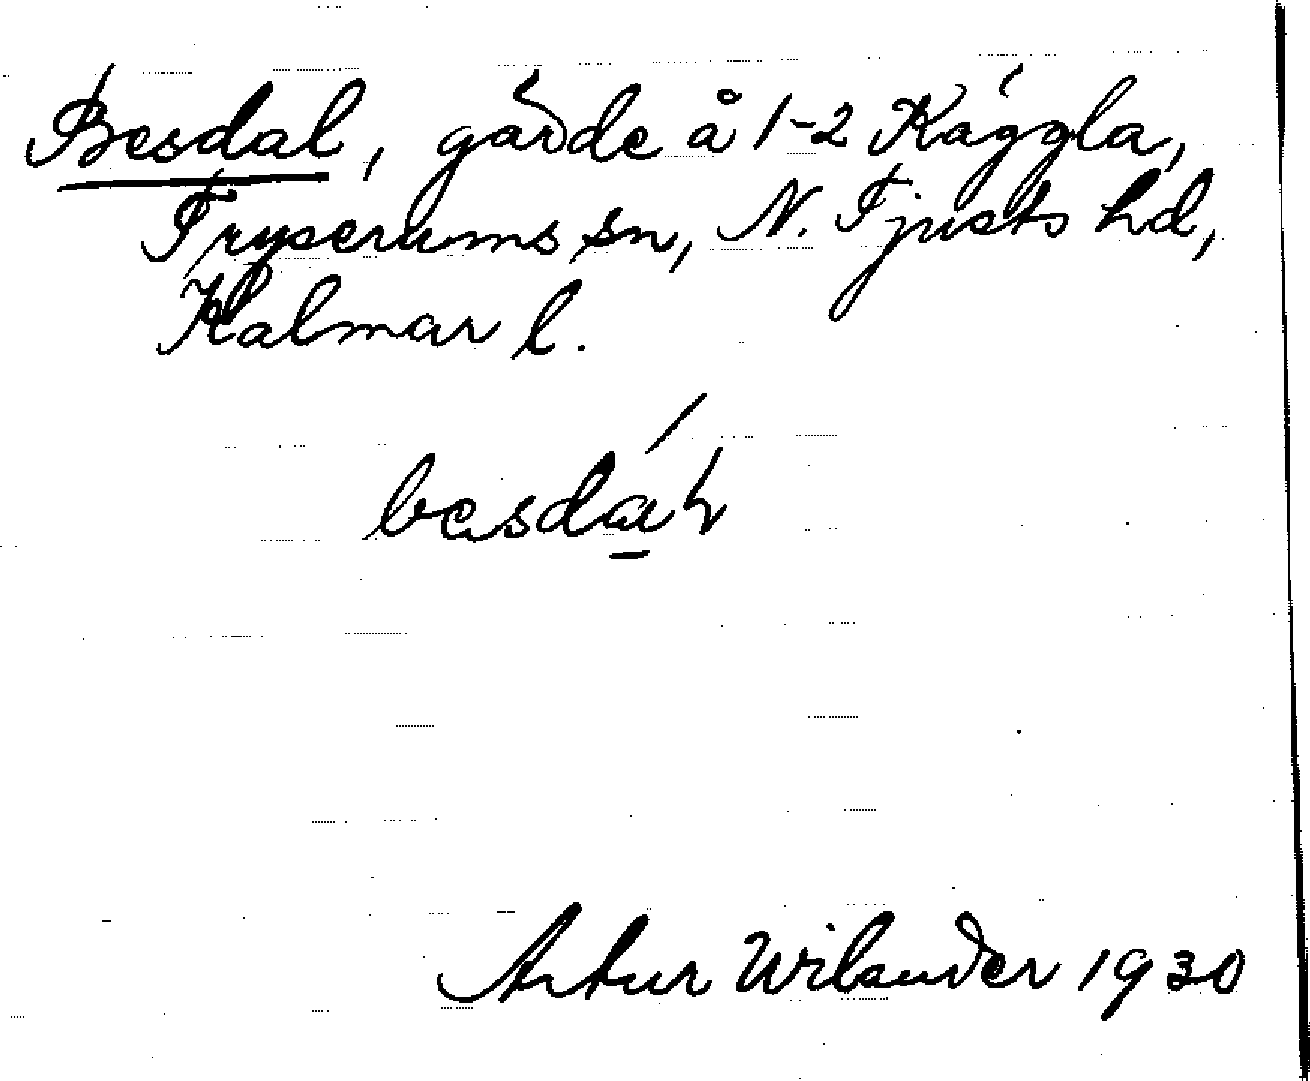 Besdal, gärde å 1-2 Kaggla,
Tryserums sn, N. Tjusts hd,
Kalmar l.
Artur Wilander 1930